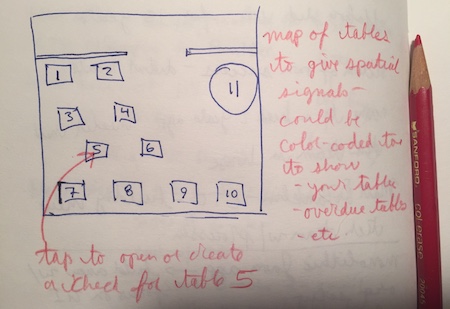 map of tables
to give spatial
signals -
could be
color-coded too
to show
- your tables
- overdue tables
- etc
1 2
11
3 4
5 6
7 8 9 10
tap to open or create
a check for table 5
SANFORD
col-erase